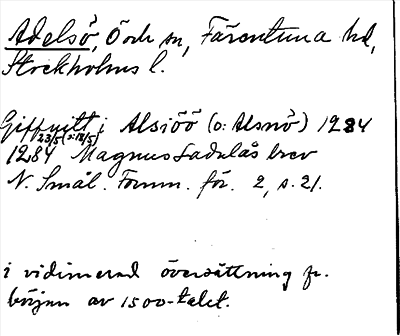 Adelsö, Ö och sn, Färentuna hd,
Stockholms l.
Giffuitt i Alsiöö (o: Alsnö) 1284
23/5 (o: 18/5)
1284 Magnus Ladulås brev
N. Smål. Fornm. för. 2, s. 21.
i vidimerad översättning fr.
början av 1500-talet.